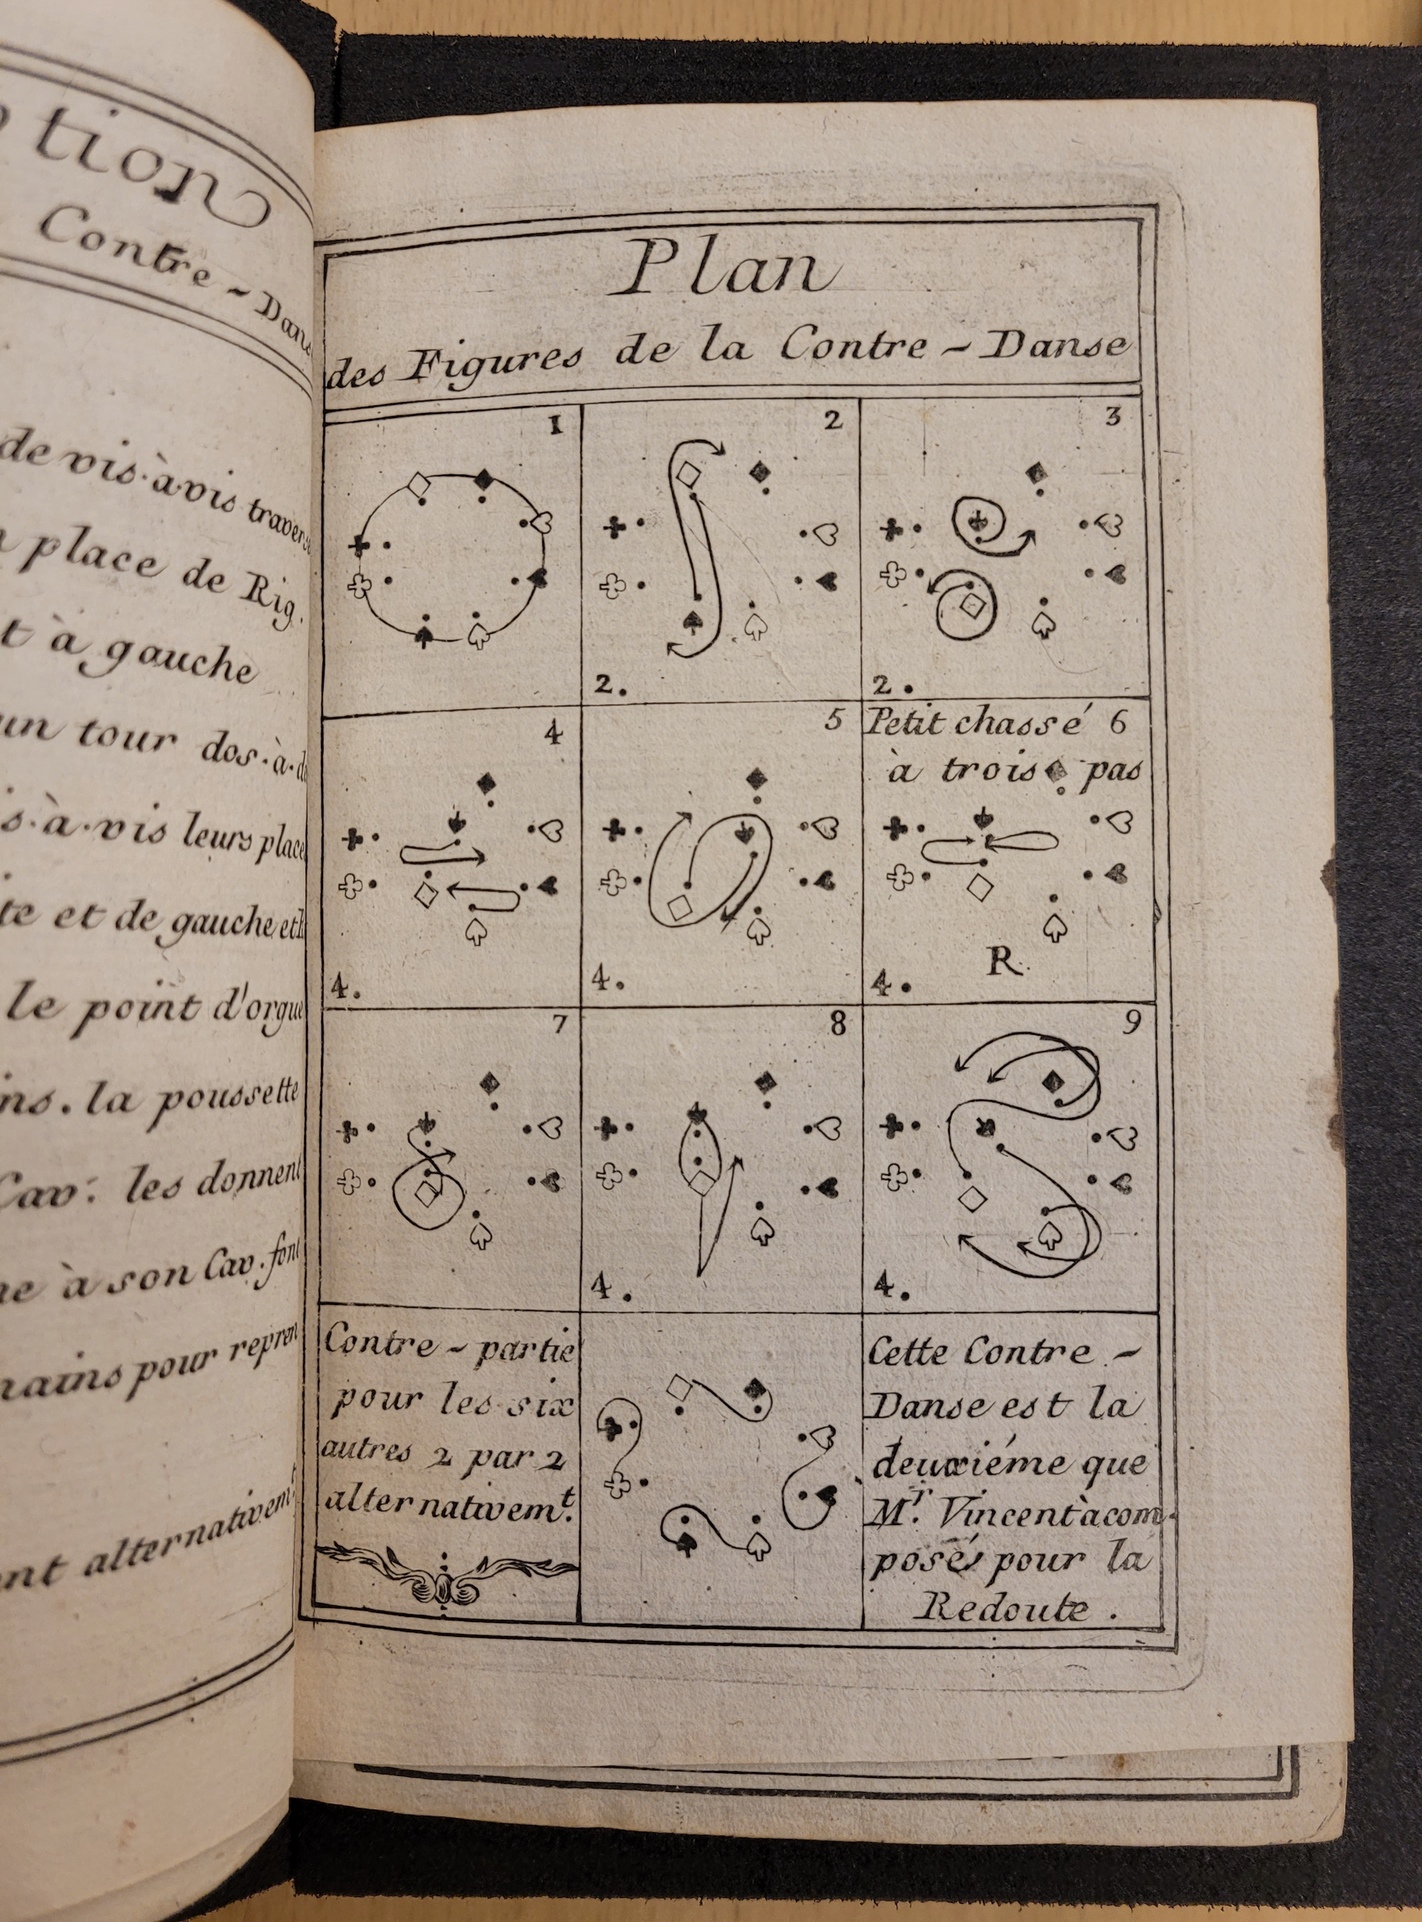 tion
Contre - Dans
de vis.à.vis traver
place de Rig.
t à gauche
un tour dos.à.d
s.à.vis leurs place
te et de gauche et
le point d'orgue
ins. la poussette
Cav. les donnent
à son Cav. font
mains pour repren
ent alternativem.t
Plan
des Figures de la Contre - Danse
1
2
2.
3
2.
4
4.
5
4.
Petit chassé 6
à trois pas
R.
4.
7
8
4.
9
4.
Contre - partie
pour les six
autres 2 par 2
alternativem.t
Cette Contre -
Danse est la
deuxiéme que
M.r Vincent à com-
posés pour la
Redoute.